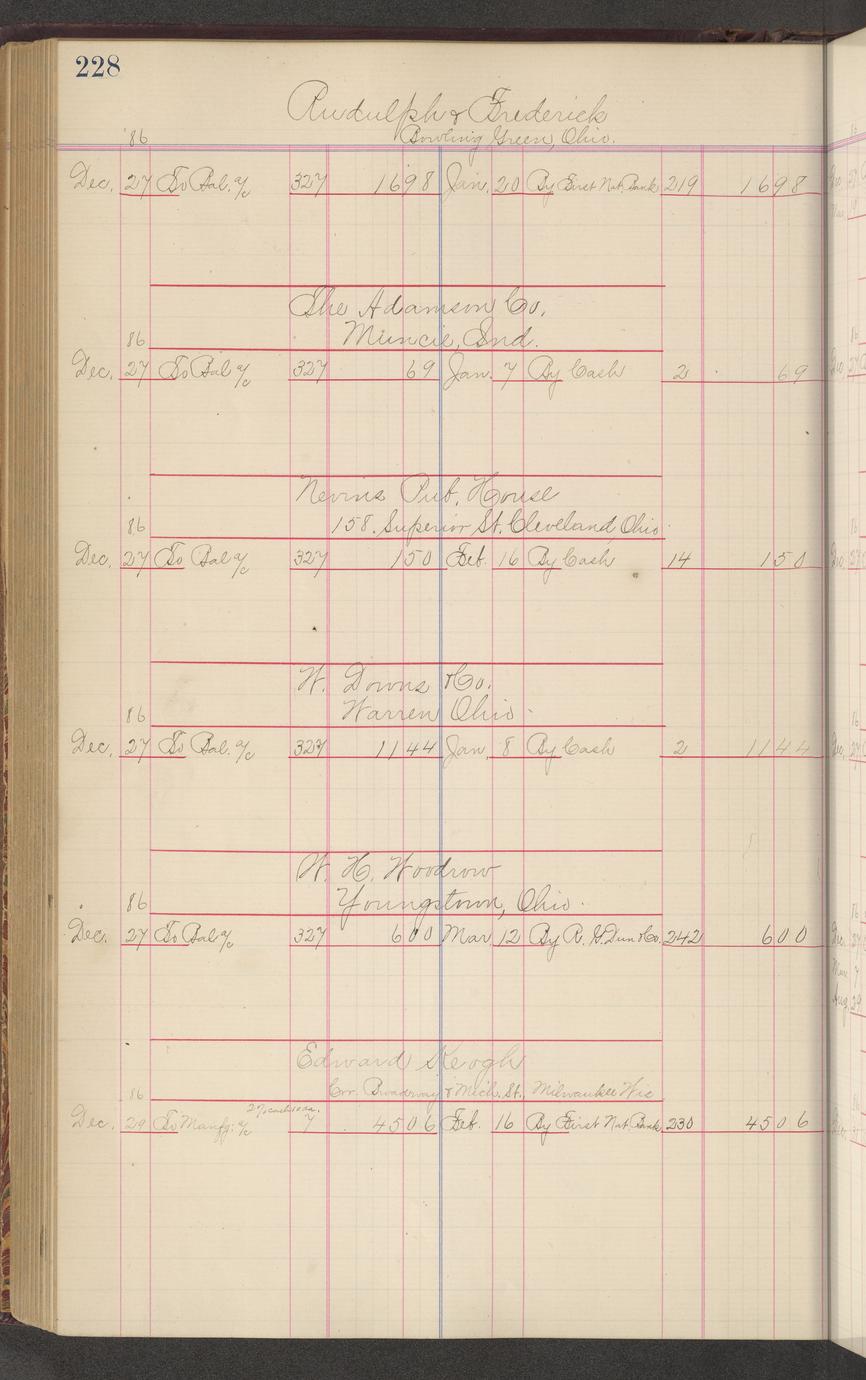 228
Rudulph & Frederick
'86 Bowling Green, Ohio.
Dec. 27 To Bal. a/c 327 1698 Jan. 20 By First Nat. Bank 219 1698
The Adamson Co.
86 Muncie, Ind.
Dec. 27 To Bal a/c 327 69 Jan. 7 By Cash 2 69
Nevins Pub. House
86 158. Superior St. Cleveland, Ohio
Dec. 27 To Bal a/c 327 150 Feb. 16 By Cash 14 150
W. Downs & Co.
86 Warren Ohio
Dec. 27 To Bal. a/c 327 1144 Jan. 8 By Cash 2 1144
W. H. Woodrow
86 Youngstown, Ohio
Dec. 27 To Bal a/c 327 600 Mar 12 By R. G. Dun & Co. 242 600
Edward Keogh
86 Cor. Broadway & Mich. St., Milwaukee Wis
2% cash
Dec. 29 To Manfg. a/c 7 4506 Feb. 16 By First Nat. Bank 230 4506